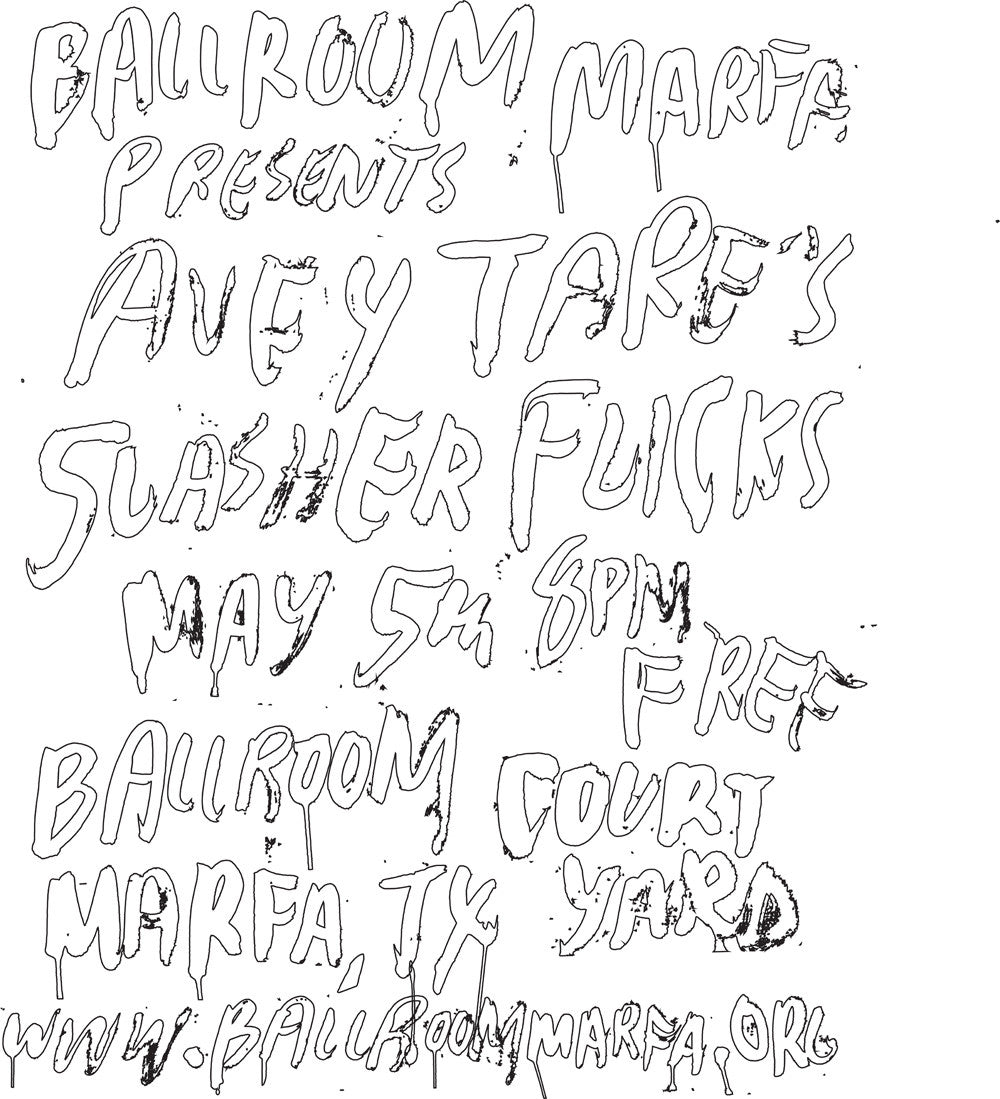 BALLROOM MARFA
PRESENTS
AVEY TARE'S
SLASHER FLICKS
MAY 5th 8PM
FREE
BALLROOM COURT
MARFA, TX YARD
WWW.BALLROOMMARFA.ORG